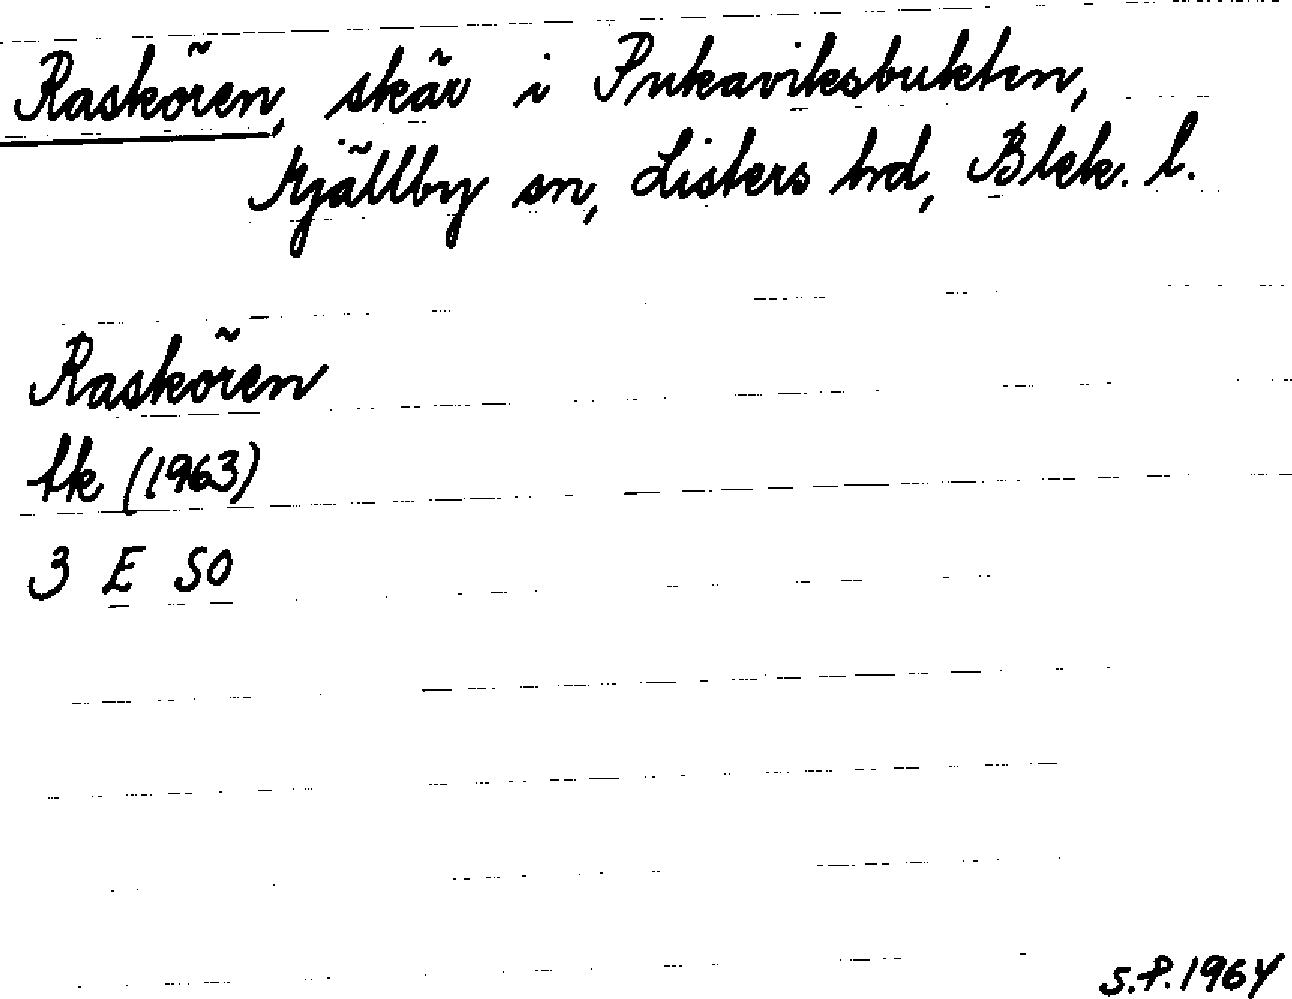 Raskören, skär i Pukaviksbukten,
Mjällby sn, Listers hd, Blek. l.
Raskören
tk (1963)
3 E SO
S.P. 1964